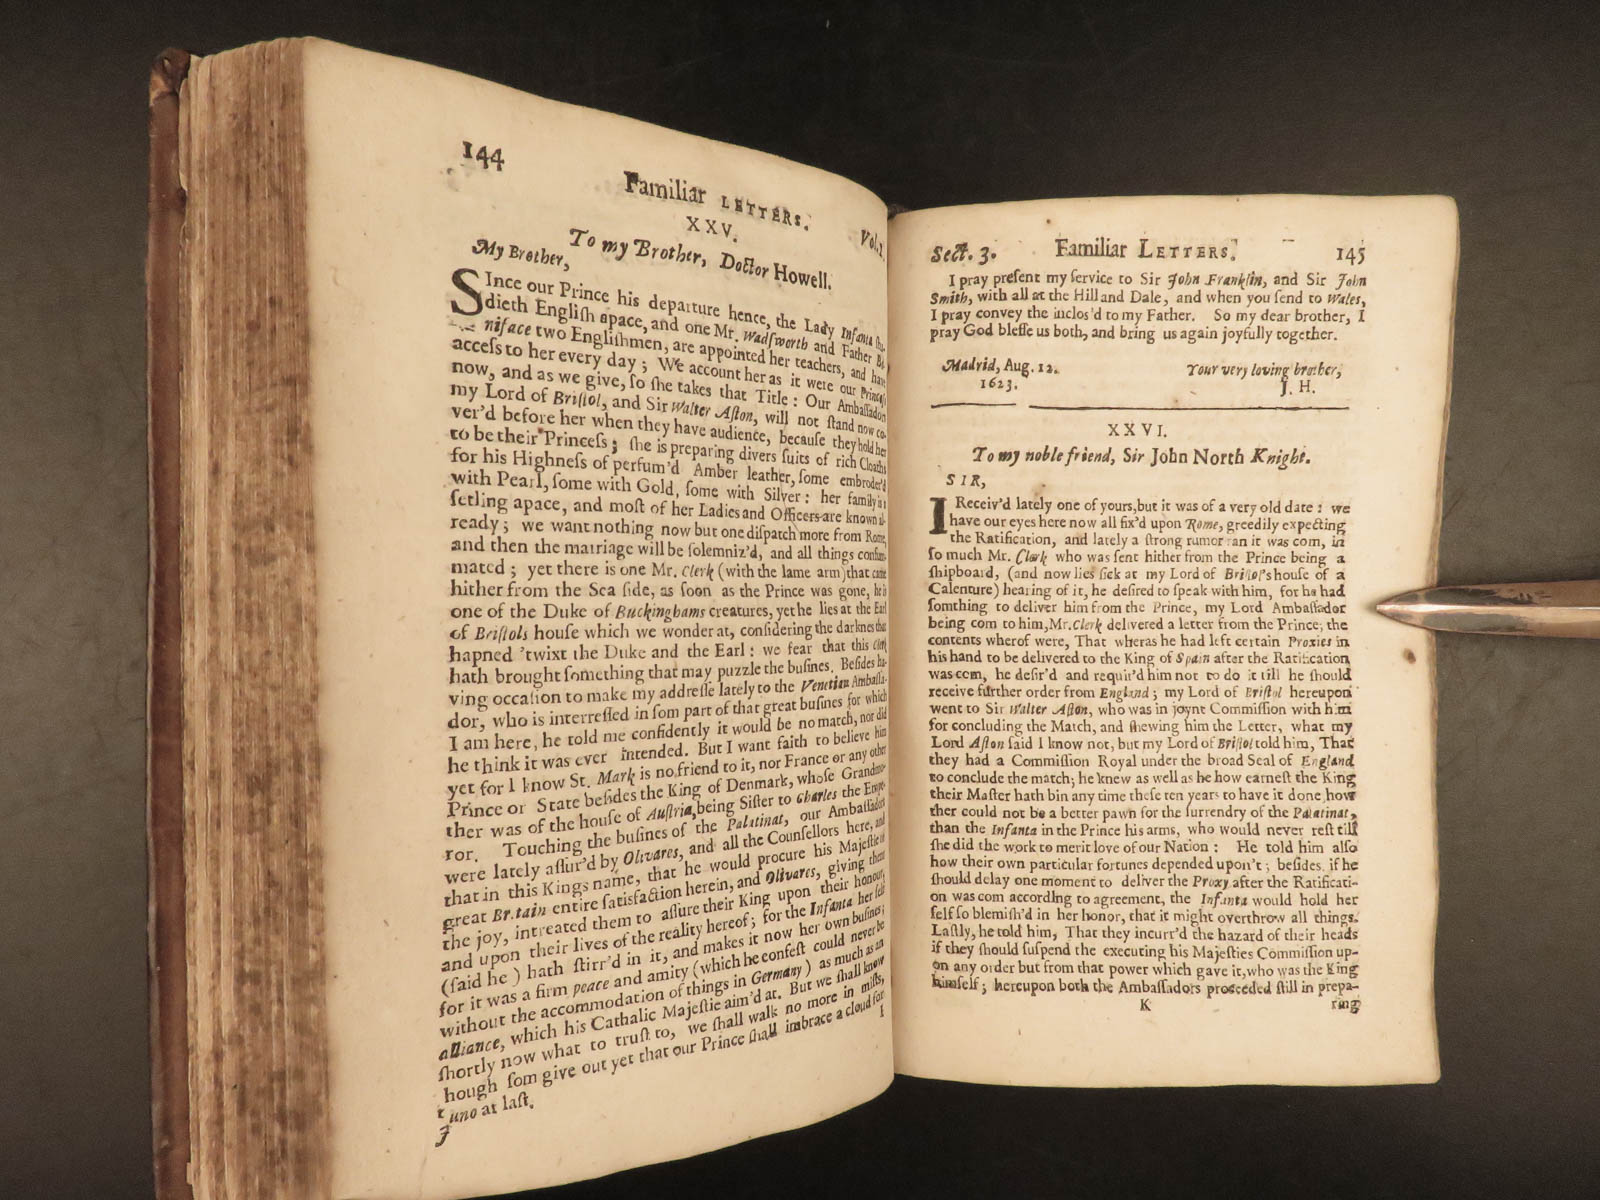 144
Familiar LETTERS. Vol. 1.
XXV.
To my Brother, Doctor Howell.
My Brother,
SInce our Prince his departure hence, the Lady Infanta stu-
dieth English apace, and one Mr. Wadsworth and Father Bo-
niface two Englishmen, are appointed her teachers, and have
access to her every day ; We account her as it were our Princess
now, and as we give, so she takes that Title : Our Ambassador
my Lord of Bristol, and Sir Walter Aston, will not stand now co-
ver'd before her when they have audience, because they hold her
to be their Princess ; she is preparing divers suits of rich Cloaths
for his Highness of perfum'd Amber leather, some embroder'd
with Pearl, some with Gold, some with Silver : her family is a
setling apace, and most of her Ladies and Officers are known al-
ready ; we want nothing now but one dispatch more from Rome,
and then the marriage will be solemniz'd, and all things consum-
mated ; yet there is one Mr. Clerk (with the lame arm) that came
hither from the Sea side, as soon as the Prince was gone, he is
one of the Duke of Buckinghams creatures, yet he lies at the Earl
of Bristols house which we wonder at, considering the darknes that
hapned 'twixt the Duke and the Earl : we fear that this Clerk
hath brought something that may puzzle the busines. Besides ha-
ving occasion to make my addresse lately to the Venetian Ambassa-
dor, who is interressed in som part of that great busines for which
I am here, he told me confidently it would be no match, nor did
he think it was ever intended. But I want faith to believe him
yet for I know St. Mark is no friend to it, nor France or any other
Prince or State besides the King of Denmark, whose Grandmo-
ther was of the house of Austria, being Sister to Charles the Empe-
ror. Touching the busines of the Palatinat, our Ambassadors
were lately assur'd by Olivares, and all the Counsellors here, and
that in this Kings name, that he would procure his Majestie of
great Br.tain entire satisfaction herein, and Olivares, giving them
the joy, intreated them to assure their King upon their honour,
and upon their lives of the reality hereof ; for the Infanta her self
(said he) hath stirr'd in it, and makes it now her own busines ;
for it was a firm peace and amity (which he confest could never be
without the accommodation of things in Germany) as much as an
alliance, which his Catholic Majestie aim'd at. But we shall know
shortly now what to trust to, we shall walk no more in mists,
hough som give out yet that our Prince shall imbrace a cloud for
uno at last.
I
Sect. 3. Familiar LETTERS. 145
I pray present my service to Sir John Franklin, and Sir John
Smith, with all at the Hill and Dale, and when you send to Wales,
I pray convey the inclos'd to my Father. So my dear brother, I
pray God blesse us both, and bring us again joyfully together.
Madrid, Aug. 12. Your very loving brother,
1623. J. H.
XXVI.
To my noble friend, Sir John North Knight.
SIR,
I Receiv'd lately one of yours, but it was of a very old date : we
have our eyes here now all fix'd upon Rome, greedily expecting
the Ratification, and lately a strong rumor ran it was com, in
so much Mr. Clerk who was sent hither from the Prince being a
shipboard, (and now lies sick at my Lord of Bristol's house of a
Calenture) hearing of it, he desired to speak with him, for he had
somthing to deliver him from the Prince, my Lord Ambassador
being com to him, Mr. Clerk delivered a letter from the Prince; the
contents wherof were, That wheras he had left certain Proxies in
his hand to be delivered to the King of Spain after the Ratification
was com, he desir'd and requir'd him not to do it till he should
receive further order from England ; my Lord of Bristol hereupon
went to Sir Walter Aston, who was in joynt Commission with him
for concluding the Match, and shewing him the Letter, what my
Lord Aston said I know not, but my Lord of Bristol told him, That
they had a Commission Royal under the broad Seal of England
to conclude the match; he knew as well as he how earnest the King
their Master hath bin any time these ten years to have it done, how
ther could not be a better pawn for the surrendry of the Palatinat,
than the Infanta in the Prince his arms, who would never rest till
she did the work to merit love of our Nation : He told him also
how their own particular fortunes depended upon't ; besides, if he
should delay one moment to deliver the Proxy after the Ratificati-
on was com according to agreement, the Infanta would hold her
self so blemish'd in her honor, that it might overthrow all things.
Lastly, he told him, That they incurr'd the hazard of their heads
if they should suspend the executing his Majesties Commission up-
on any order but from that power which gave it, who was the King
himself ; hereupon both the Ambassadors proceeded still in prepa-
K ring